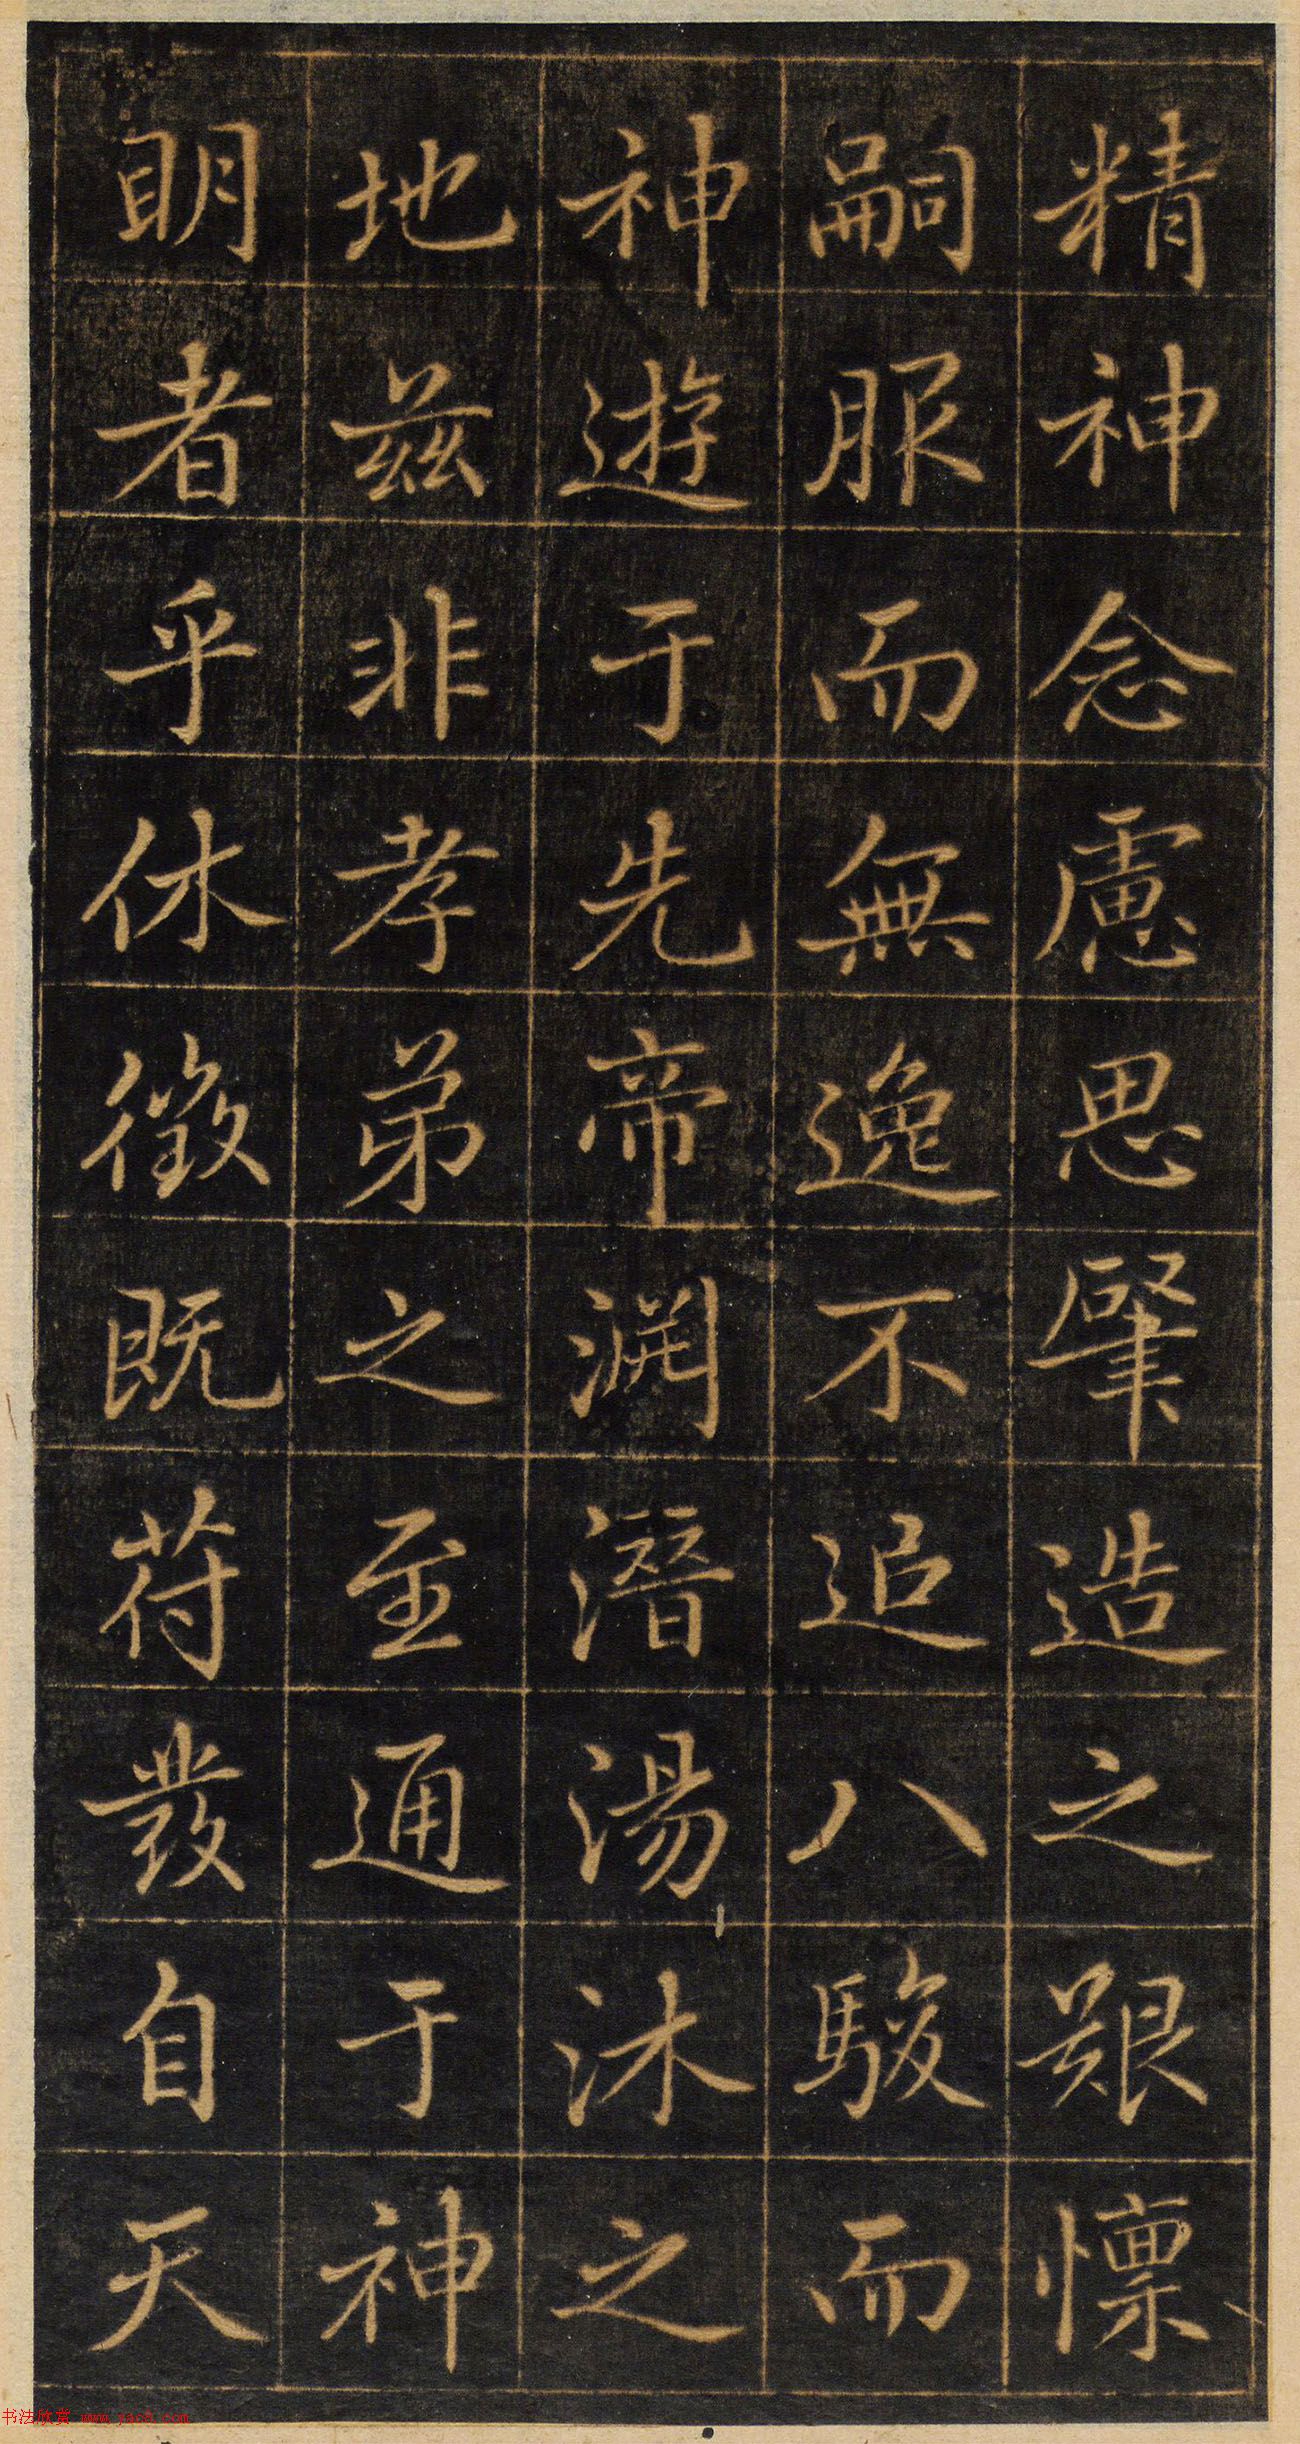 精神念慮思肇造之艱懍
嗣服而無逸不追八駿而
神遊于先帝渊潛湯沐之
地茲非孝弟之至通于神
明者乎休徵既苻發自天
书法欣赏 www.yac8.com